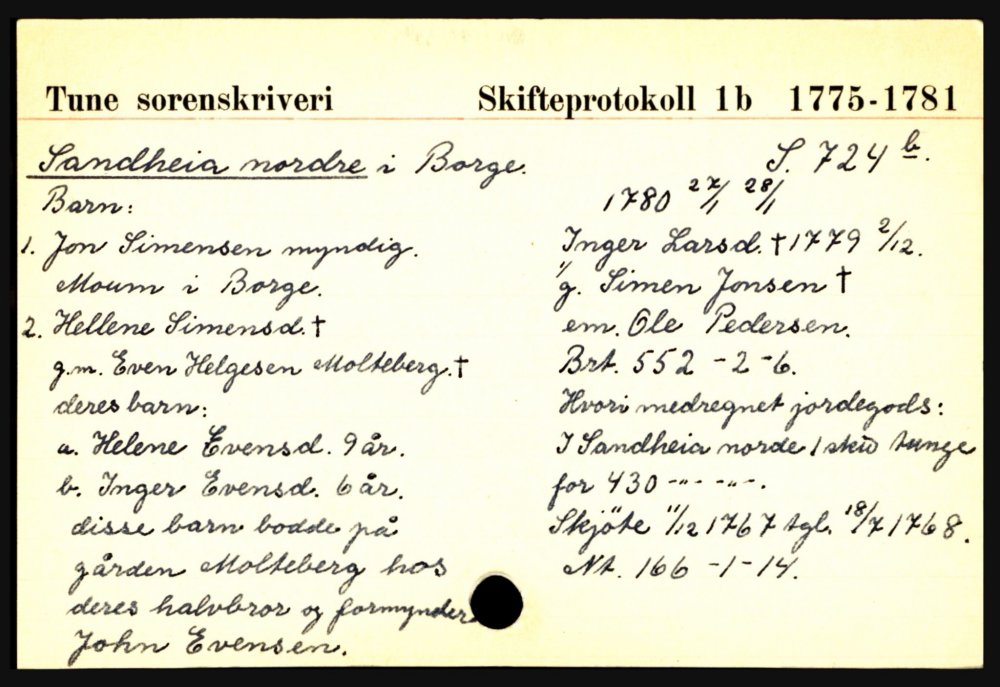 Tune sorenskriveri Skifteprotokoll 1b 1775-1781
Sandheia nordre i Borge. S. 724 b.
Barn:
1. Jon Simensen myndig.
Moum i Borge.
2. Hellene Simensd. †
g.m. Even Helgesen Molteberg. †
deres barn:
a. Helene Evensd. 9 år.
b. Inger Evensd. 6 år.
disse barn bodde på
gården Molteberg hos
deres halvbror og formynder
John Evensen.
1780 27/1 28/1
Inger Larsd. † 1779 2/12.
1/ g. Simen Jonsen †
em. Ole Pedersen.
Brt. 552 - 2 - 6.
Hvori medregnet jordegods:
I Sandheia norde 1 skid tunge
for 430 -"- -"-.
Skjöte 11/12 1767 tgl. 18/7 1768.
Nt. 166 - 1 - 14.